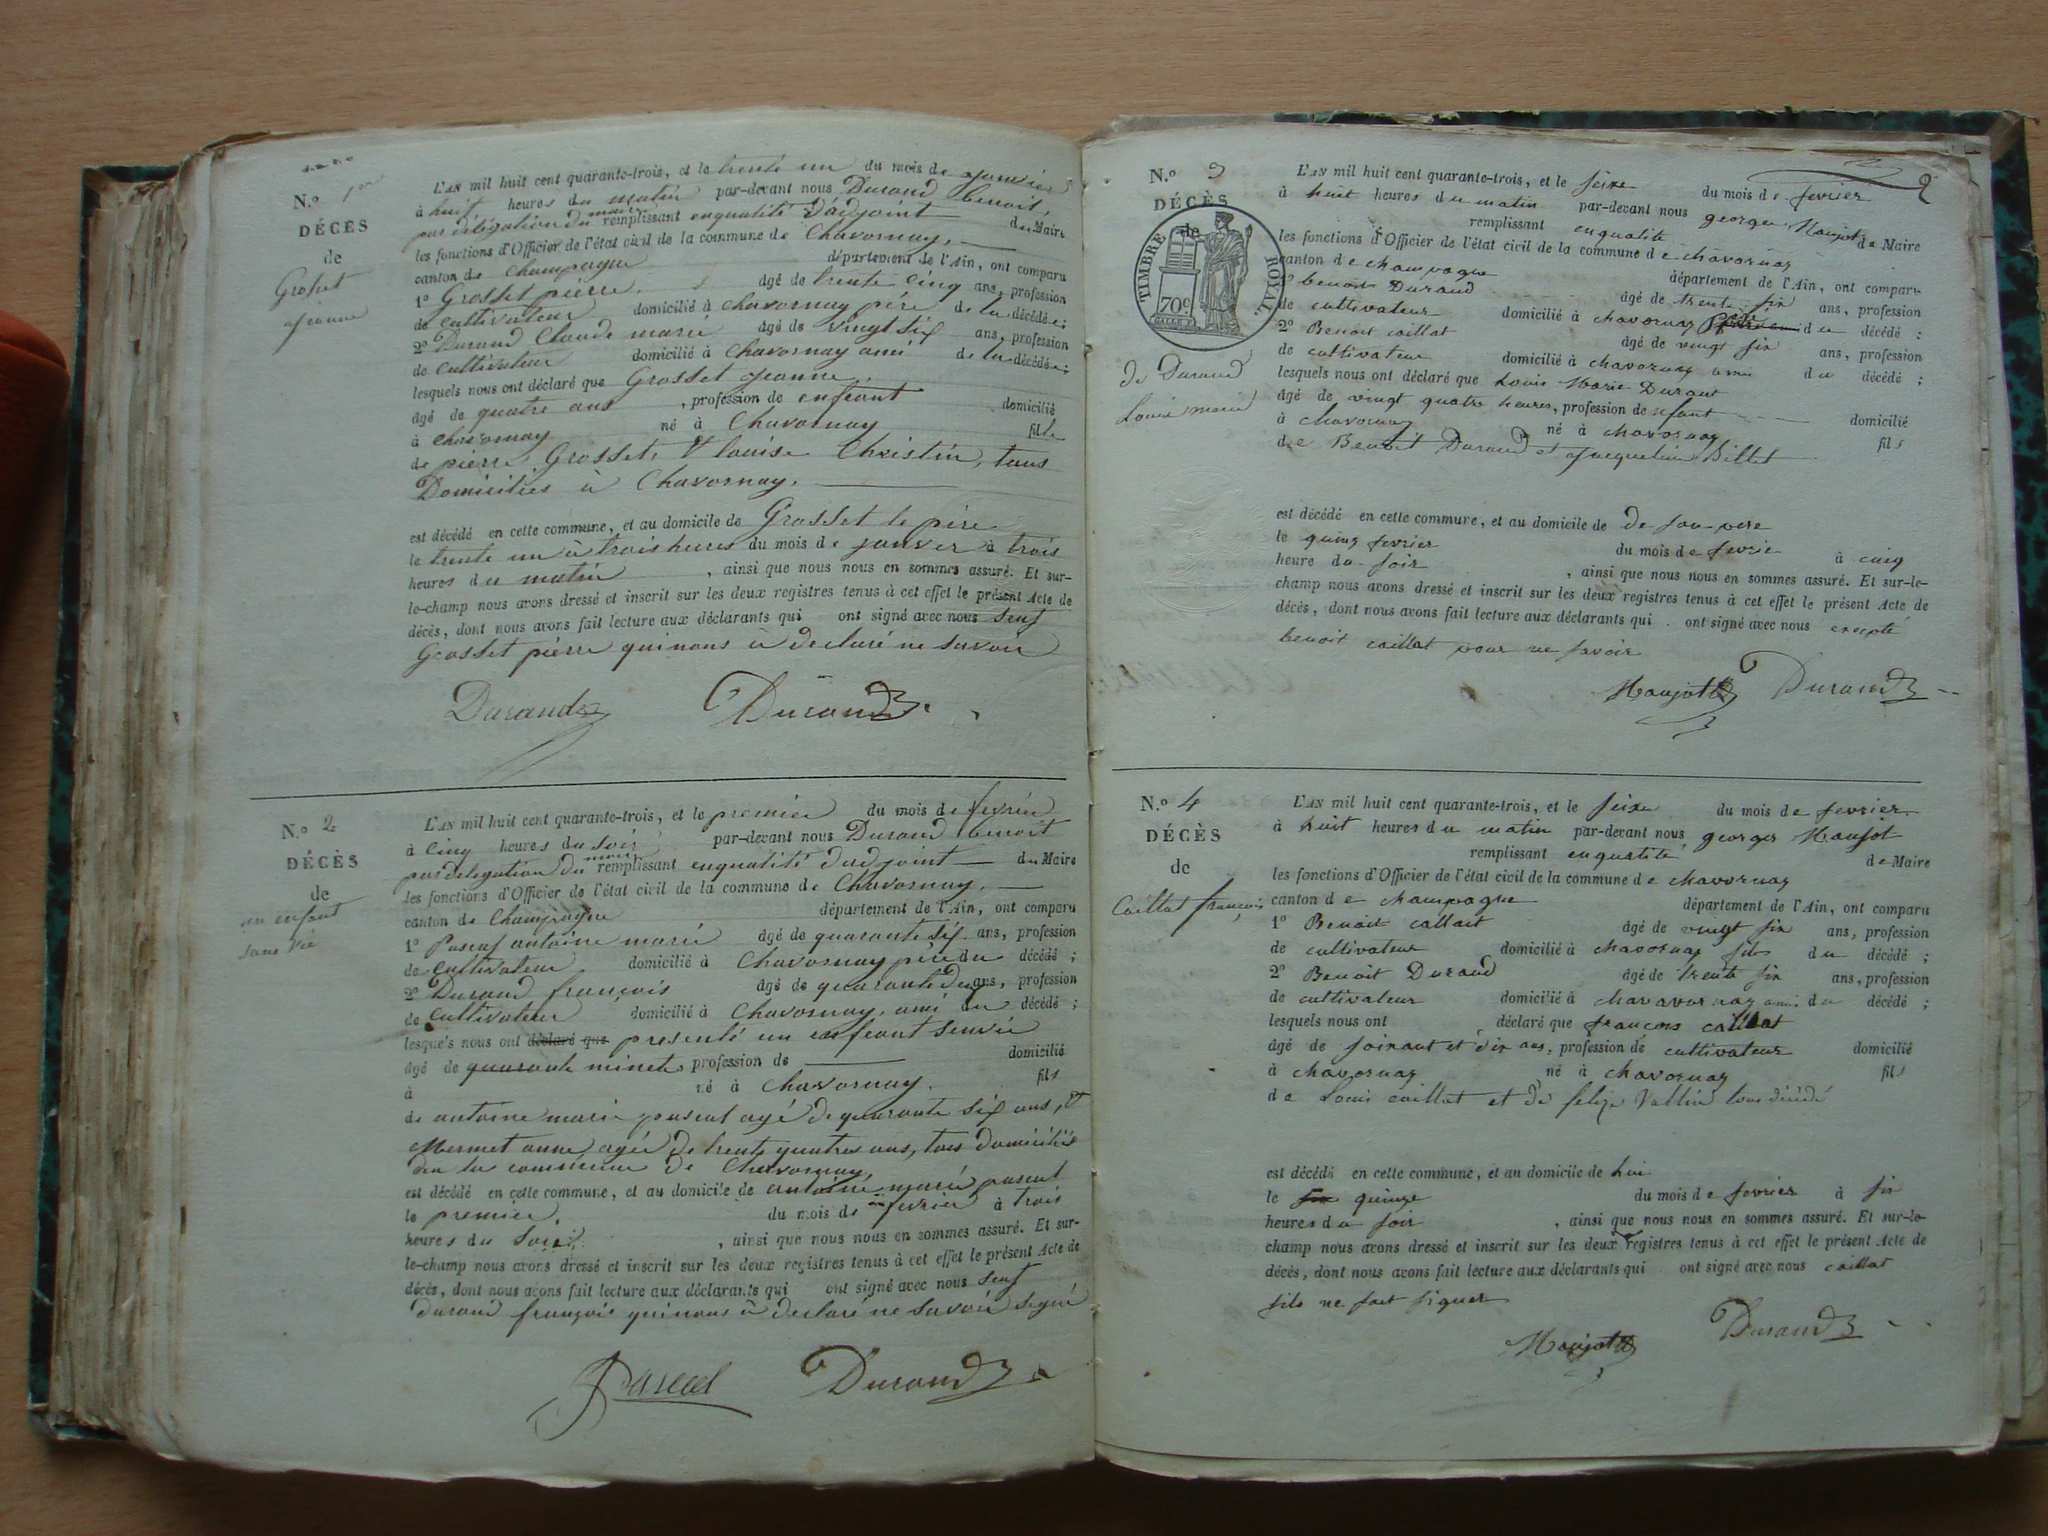 N.o 1er
DÉCÈS
de
Grosset
Jeanne
L'AN mil huit cent quarante-trois, et le trente un du mois de janvier
à huit heures du matin par-devant nous Durand benoit,
par délégation du maire remplissant enqualité d'adjoint du Maire
les fonctions d'Officier de l'état civil de la commune de Chavornay,
canton de Champagne département de l'Ain, ont comparu
1o Grosset pierre. âgé de trente cinq ans, profession
de cultivateur domicilié à Chavornay père de la décédée;
2o Durand Claude marie âgé de vingt six ans, profession
de cultivateur domicilié à Chavornay ami de la décédée;
lesquels nous ont déclaré que Grosset Jeanne,
âgé de quatre ans, profession de enfeant domicilié
à Chavornay né à Chavornay fille
de pierre Grosset, & louise Christin, tous
Domiciliés à Chavornay.
est décédé en cette commune, et au domicile de Grosset le père
le trente un à trois heures du mois de janvier à trois
heures du matin, ainsi que nous nous en sommes assuré. Et sur-
le-champ nous avons dressé et inscrit sur les deux registres tenus à cet effet le présent Acte de
décès, dont nous avons fait lecture aux déclarants qui ont signé avec nous seuf
Grosset pierre qui nous à declaré ne savoir
Durand Durand
N.o 2
DÉCÈS
de
un enfant
sans vie
L'AN mil huit cent quarante-trois, et le premier du mois de fevrier
à cinq heures du soir par-devant nous Durand benoit
par delegation du maire remplissant enqualité dadjoint du Maire
les fonctions d'Officier de l'état civil de la commune de Chavornay,
canton de Champagne département de l'Ain, ont comparu
1o Pascal antoine marie âgé de quarante six ans, profession
de cultivateur domicilié à Chavornay père du décédé;
2o Durand françois âgé de quarante deux ans, profession
de cultivateur domicilié à Chavornay, ami du décédé;
lesquels nous ont déclaré que presenté un enfeant senvie
âgé de quarante minets profession de domicilié
à né à Chavornay. fils
de antoine marie pascal agé de quarante six ans, &
Mermet anne agée de trente quatres ans, tous domiciliés
den la commune de Chavornay,
est décédé en cette commune, et au domicile de antoine marie pascal
le premier du mois de fevrier à trois
heures du soir, ainsi que nous nous en sommes assuré. Et sur-
le-champ nous avons dressé et inscrit sur les deux registres tenus à cet effet le présent Acte de
décès, dont nous avons fait lecture aux déclarants qui ont signé avec nous seuf
durand françois qui nous à declaré ne savoir signé
Pascal Durand
2
N.o 3
DÉCÈS
de
TIMBRE ROYAL
70c
de Durand
Louis marie
L'AN mil huit cent quarante-trois, et le seize du mois de fevrier
à huit heures du matin par-devant nous georges Maujot
remplissant enqualité de Maire
les fonctions d'Officier de l'état civil de la commune de chavornay
canton de champagne département de l'Ain, ont comparu
1o benoit Durand âgé de trente six ans, profession
de cultivateur domicilié à chavornay du décédé;
2o Benoit caillat âgé de vingt six ans, profession
de cultivateur domicilié à chavornay ami du décédé;
lesquels nous ont déclaré que Louis Marie Durant
âgé de vingt quatre heures, profession de nfant domicilié
à chavornay né à chavornay fils
de Benoit Durand et Jacqueline Billet
est décédé en cette commune, et au domicile de de son pere
le quinz fevrier du mois de fevrie à cinq
heure du soir, ainsi que nous nous en sommes assuré. Et sur-le-
champ nous avons dressé et inscrit sur les deux registres tenus à cet effet le présent Acte de
décès, dont nous avons fait lecture aux déclarants qui ont signé avec nous excepté
benoit caillat pour ne savoir
Maujot Durand
N.o 4
DÉCÈS
de
Caillat françois
L'AN mil huit cent quarante-trois, et le seize du mois de fevrier
à huit heures du matin par-devant nous georges Maujot
remplissant enqualité de Maire
les fonctions d'Officier de l'état civil de la commune de chavornay
canton de champagne département de l'Ain, ont comparu
1o Benoit callait âgé de vingt six ans, profession
de cultivateur domicilié à chavornay fils du décédé;
2o Benoit Durand âgé de trente six ans, profession
de cultivateur domicilié à chavavornay ami du décédé;
lesquels nous ont déclaré que françois caillat
âgé de soixant et dix ans, profession de cultivateur domicilié
à chavornay né à chavornay fils
de Louis caillat et de felize Vallin tous décédé
est décédé en cette commune, et au domicile de lui
le six quinze du mois de fevrier à six
heures du soir, ainsi que nous nous en sommes assuré. Et sur-le-
champ nous avons dressé et inscrit sur les deux registres tenus à cet effet le présent Acte de
décès, dont nous avons fait lecture aux déclarants qui ont signé avec nous caillat
fils ne sact signer
Maujot Durand